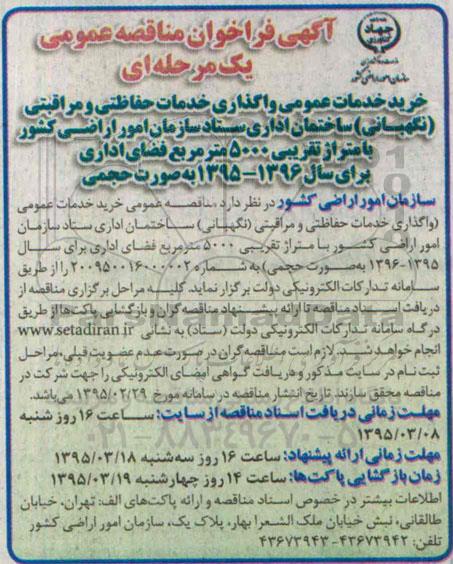 آگهی فراخوان مناقصه عمومی
یک مرحله ای
جهاد
سازمان امور اراضی کشور
خرید خدمات عمومی واگذاری خدمات حفاظتی و مراقبتی
(نگهبانی) ساختمان اداری ستاد سازمان امور اراضی کشور
با متراژ تقریبی ۵۰۰۰ متر مربع فضای اداری
برای سال ۱۳۹۶-۱۳۹۵ به صورت حجمی
سازمان امور اراضی کشور در نظر دارد مناقصه عمومی خرید خدمات عمومی
(واگذاری خدمات حفاظتی و مراقبتی (نگهبانی) ساختمان اداری ستاد سازمان
امور اراضی کشور با متراژ تقریبی ۵۰۰۰ مترمربع فضای اداری برای سال
۱۳۹۵-۱۳۹۶ به‌صورت حجمی) به شماره ۲۰۰۹۵۰۰۱۶۰۰۰۰۰۲ را از طریق
سامانه تدارکات الکترونیکی دولت برگزار نماید. کلیه مراحل برگزاری مناقصه از
دریافت اسناد مناقصه تا ارائه پیشنهاد مناقصه‌گران و بازگشایی پاکت‌ها از طریق
درگاه سامانه تدارکات الکترونیکی دولت (ستاد) به نشانی www.setadiran.ir
انجام خواهد شد. لازم است مناقصه‌گران در صورت عدم عضویت قبلی، مراحل
ثبت نام در سایت مذکور و دریافت گواهی امضای الکترونیکی را جهت شرکت در
مناقصه محقق سازند. تاریخ انتشار مناقصه در سامانه مورخ ۱۳۹۵/۰۲/۲۹ می‌باشد.
مهلت زمانی دریافت اسناد مناقصه از سایت: ساعت ۱۶ روز شنبه
۱۳۹۵/۰۳/۰۸
مهلت زمانی ارائه پیشنهاد: ساعت ۱۶ روز سه‌شنبه ۱۳۹۵/۰۳/۱۸
زمان بازگشایی پاکت‌ها: ساعت ۱۴ روز چهارشنبه ۱۳۹۵/۰۳/۱۹
اطلاعات بیشتر در خصوص اسناد مناقصه و ارائه پاکت‌های الف: تهران، خیابان
طالقانی، نبش خیابان ملک الشعرا بهار، پلاک یک، سازمان امور اراضی کشور
تلفن: ۴۳۶۷۳۹۴۲-۴۳۶۷۳۹۴۳